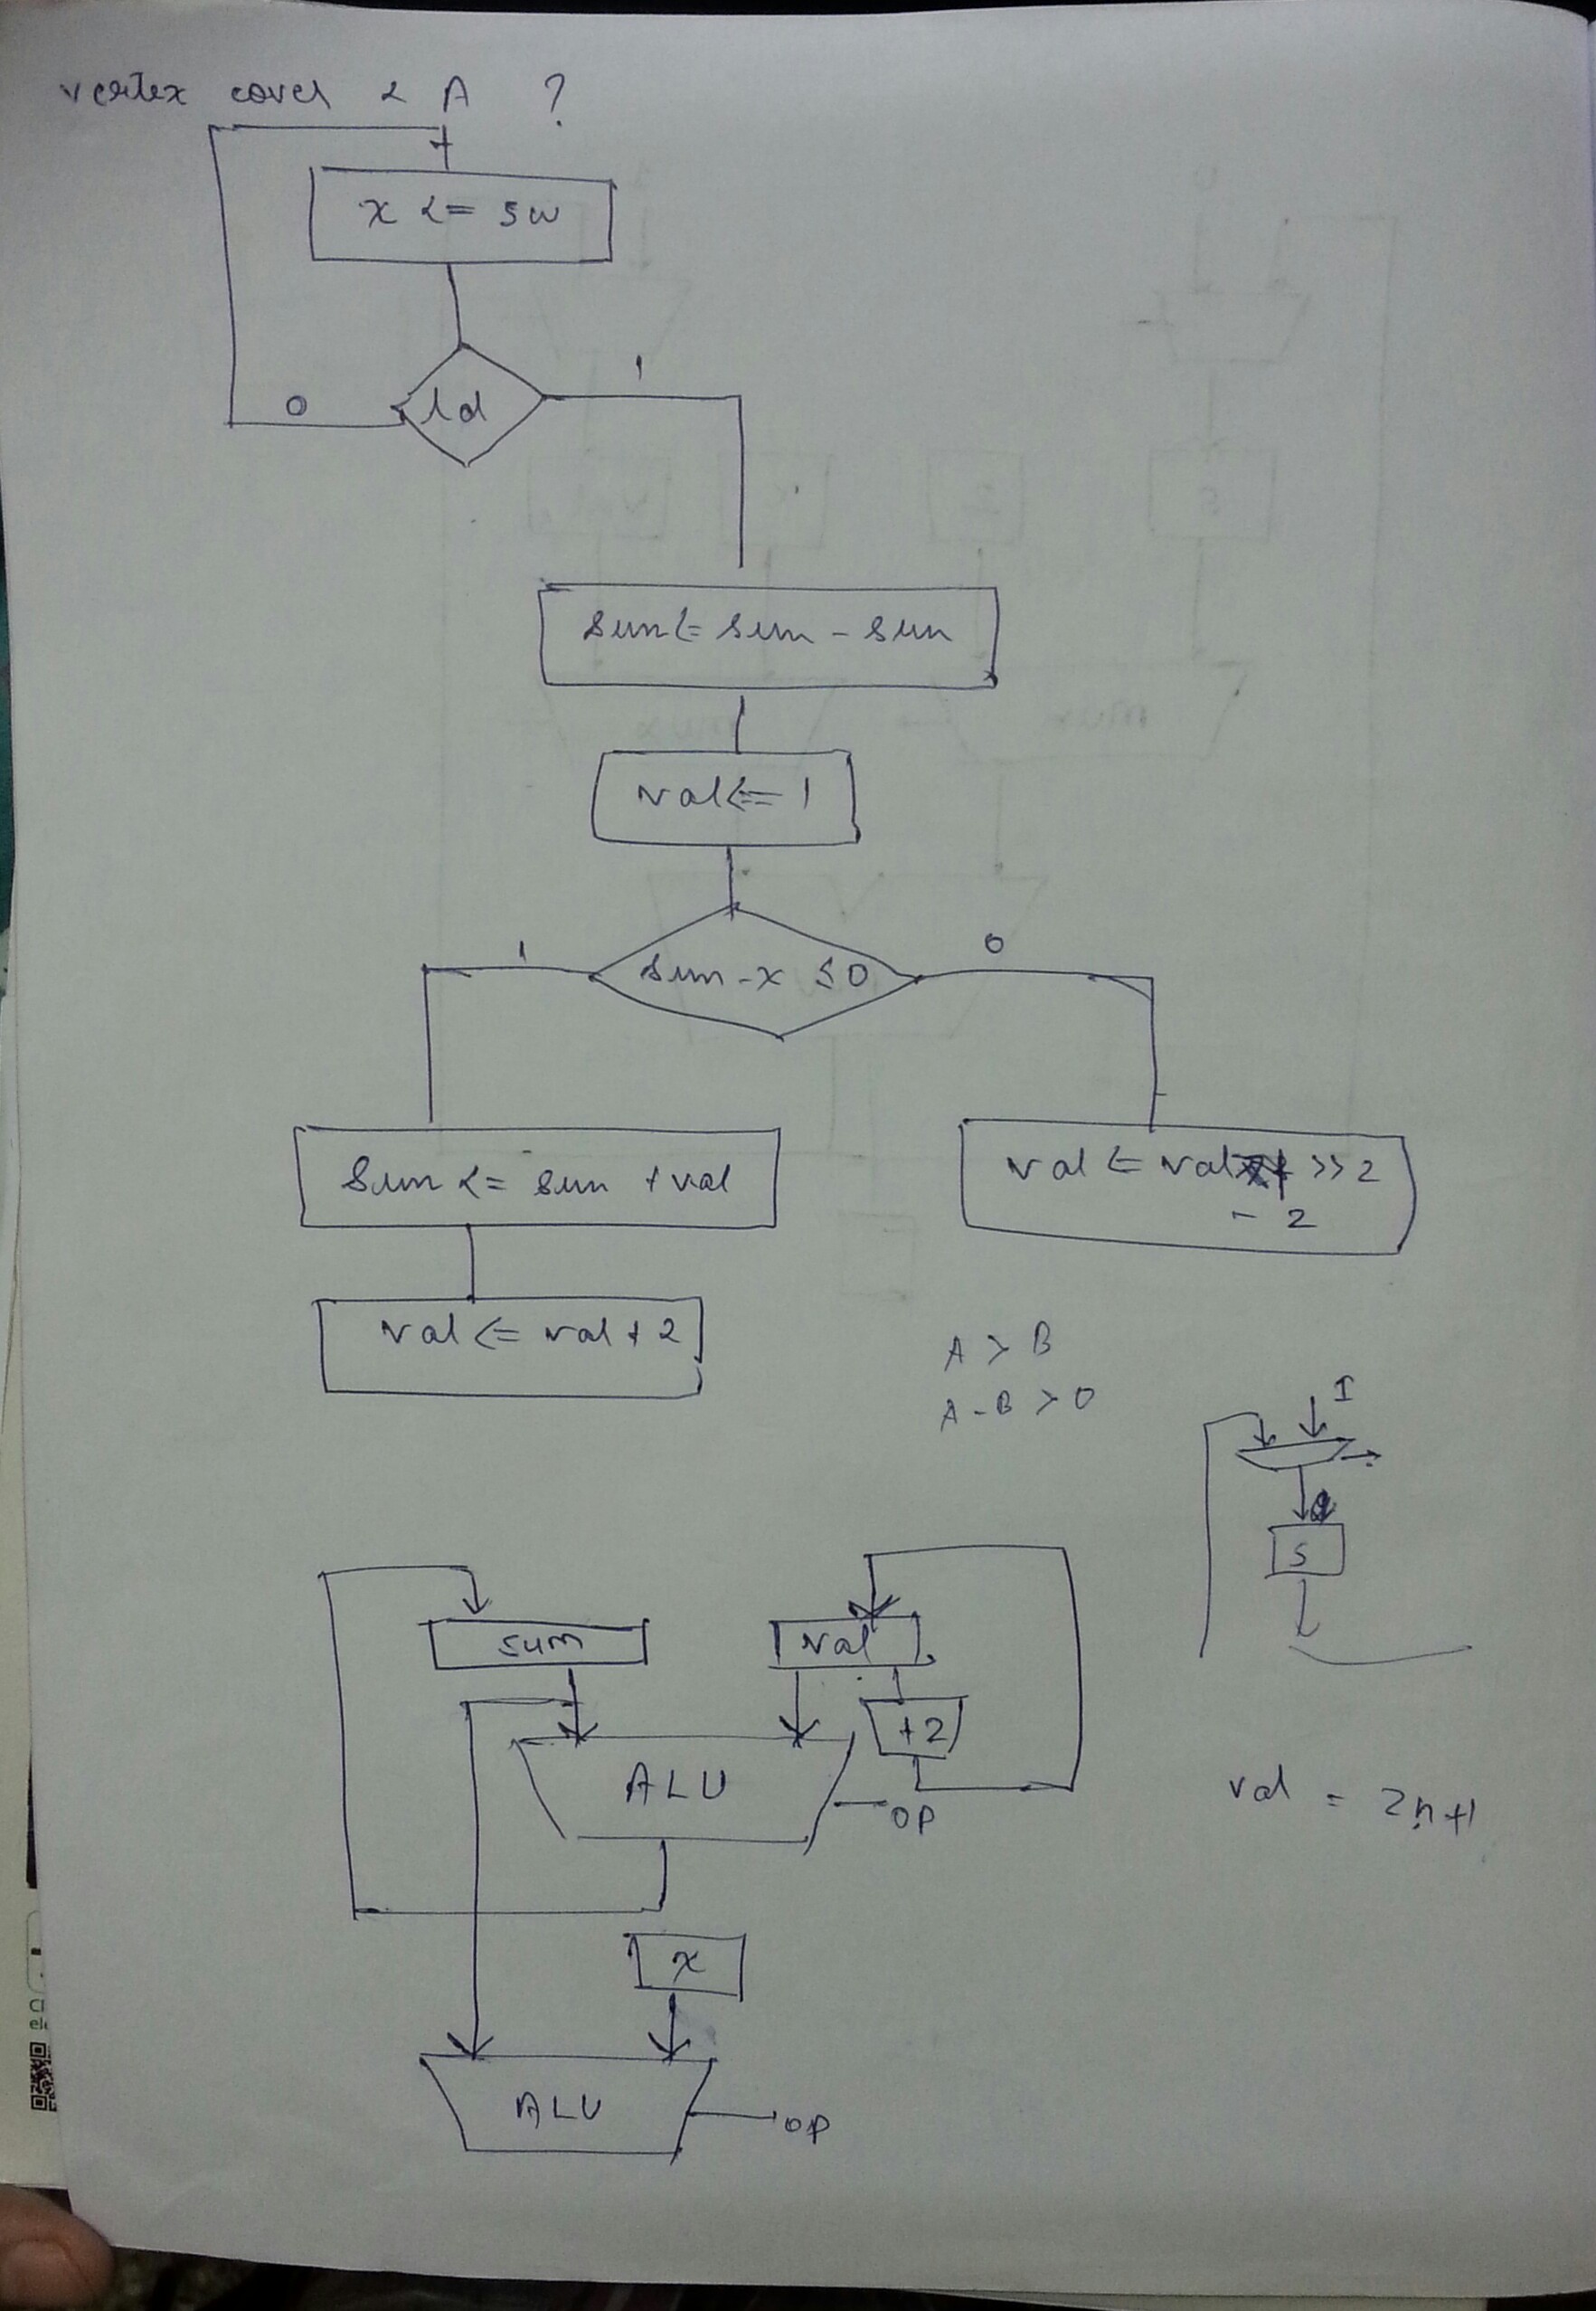 vertex cover & A ?
x <= sw
ld
0
1
sum <= sum - sum
val <= 1
sum - x ≤ 0
1
0
sum <= sum + val
val <= val >> 2
- 2
val <= val + 2
A > B
A - B > 0
I
S
sum
val
+2
ALU
op
val = 2n+1
x
ALU
op